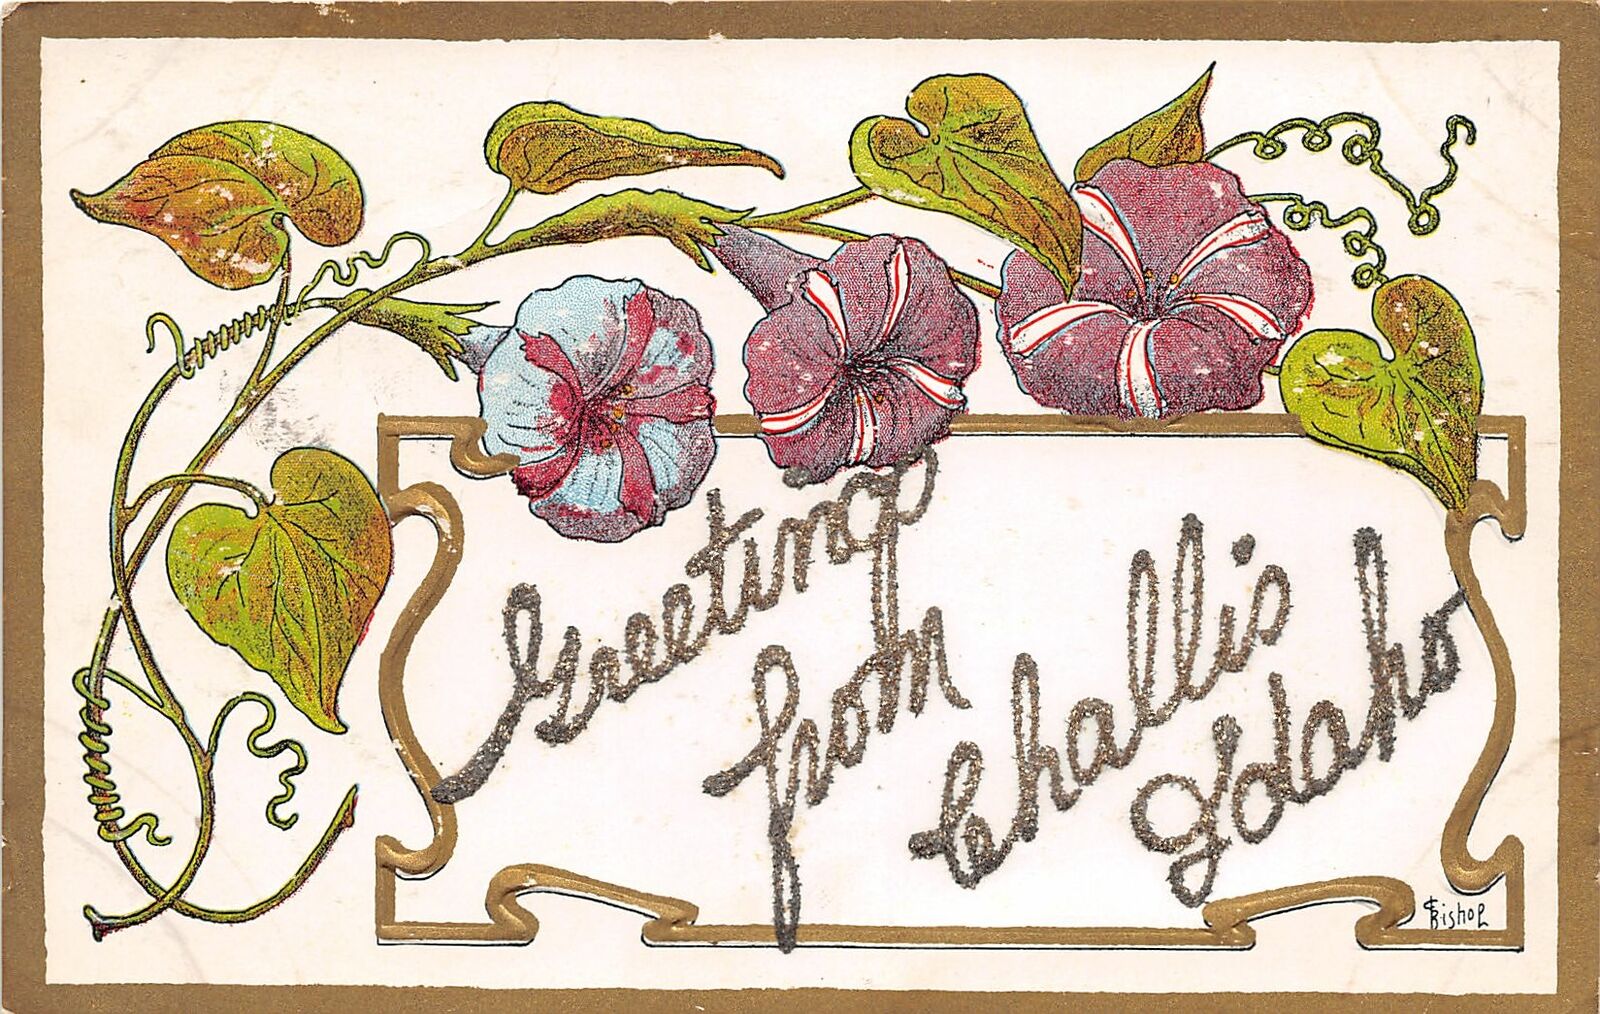 Greeting
from
Challis
Idaho
C Bishop